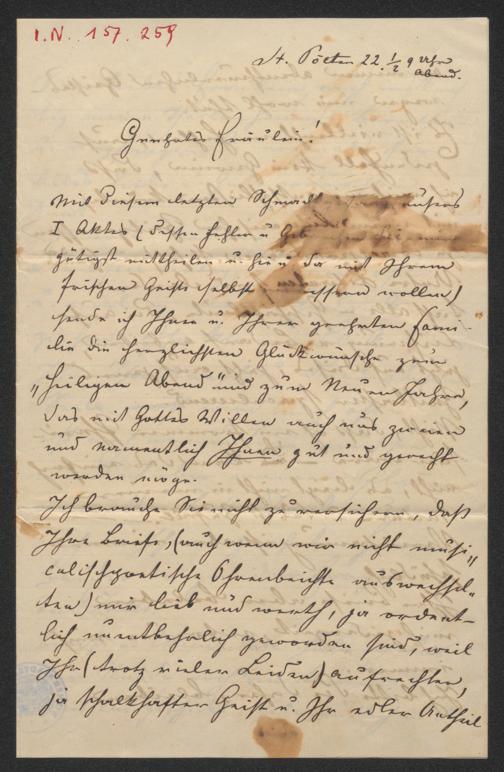 I.N. 157.259
St. Pölten 22. ½ 9 Uhr
Abend.
Geehrtes Fräulein!
Mit diesem letzten unsers
I Aktes (dessen Fehler u. Geb
gütigst mittheilen u. hie u. da mit Ihrem
frischen Geiste selbst bessern wollen)
sende ich Ihnen u. Ihrer geehrten Fami-
lie die herzlichsten Glückwünsche zum
„heiligen Abend“ und zum Neuen Jahre,
das mit Gottes Willen auch uns zweien
und namentlich Ihnen gut und gerecht
werden möge.
Ich brauche Sie nicht zu versichern, daß
Ihre Briefe, (auch wenn wir nicht musi„
calischpoetische Ohrenbeichte auswechsel„
ten) mir lieb und werth, ja ordent-
lich unentbehrlich geworden sind, weil
Ihr (trotz vieler Leiden) aufrechter,
ja schalkhafter Geist u. Ihr edler Antheil